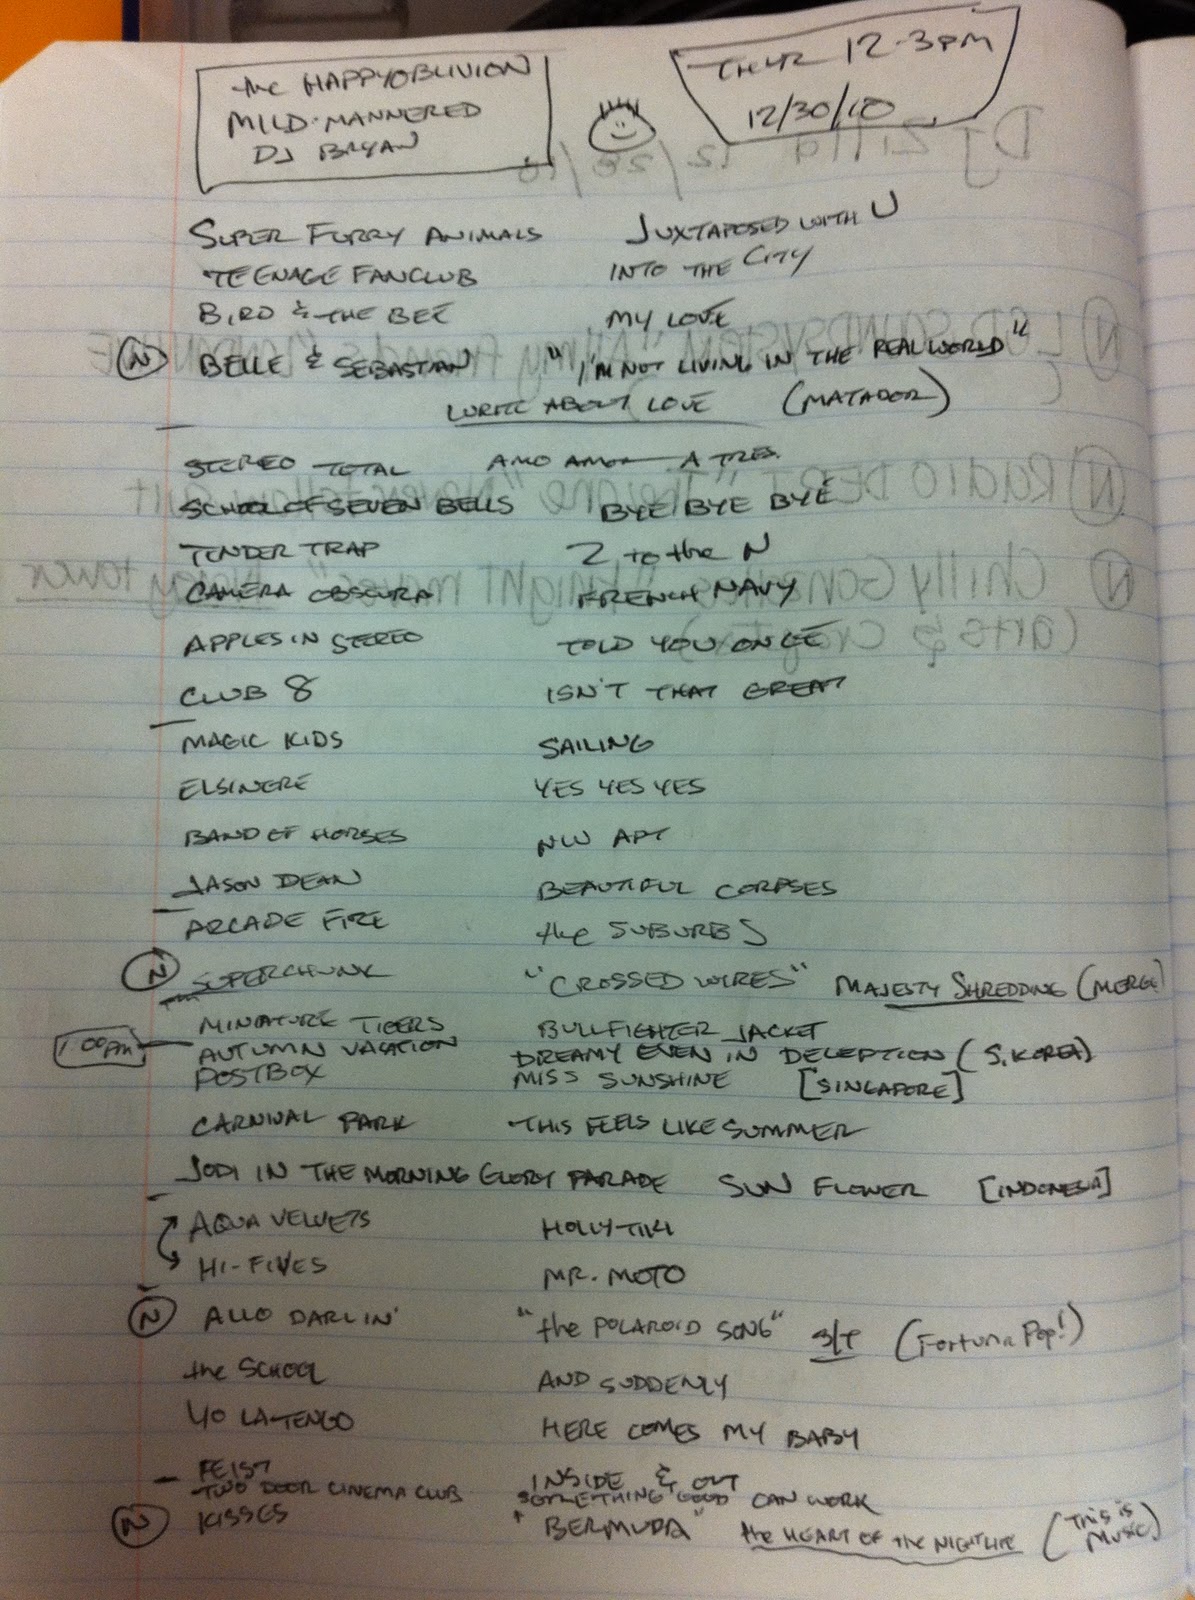 the HAPPYOBLIVION
MILD-MANNERED
DJ BRYAN
THUR 12-3PM
12/30/10
DJ Zilla 12/28/10
SUPER FURRY ANIMALS JUXTAPOSED WITH U
TEENAGE FANCLUB INTO THE CITY
BIRD & THE BEE MY LOVE
(N) BELLE & SEBASTIAN "I'M NOT LIVING IN THE REAL WORLD"
WRITE ABOUT LOVE (MATADOR)
STEREO TOTAL AMO AMOR A TRES.
SCHOOL OF SEVEN BELLS BYE BYE BYE
TENDER TRAP 2 to the N
CAMERA OBSCURA FRENCH NAVY
APPLES IN STEREO TOLD YOU ONCE
CLUB 8 ISN'T THAT GREAT
MAGIC KIDS SAILING
ELSINORE YES YES YES
BAND OF HORSES NW APT
JASON DEAN BEAUTIFUL CORPSES
ARCADE FIRE the SUBURBS
(N) SUPERCHUNK "CROSSED WIRES" MAJESTY SHREDDING (MERGE)
MINIATURE TIGERS BULLFIGHTER JACKET
1:00PM AUTUMN VACATION DREAMY EVEN IN DECEPTION (S. KOREA)
POSTBOX MISS SUNSHINE [SINGAPORE]
CARNIVAL PARK THIS FEELS LIKE SUMMER
JODI IN THE MORNING GLORY PARADE SUN FLOWER [INDONESIA]
AQUA VELVETS HOLLY TIKI
HI-FIVES MR. MOTO
(N) ALLO DARLIN' "the POLAROID SONG" S/T (Fortuna Pop!)
the SCHOOL AND SUDDENLY
YO LA TENGO HERE COMES MY BABY
FEIST INSIDE & OUT
TWO DOOR CINEMA CLUB SOMETHING GOOD CAN WORK
(N) KISSES "BERMUDA" the HEART OF the NIGHTLIFE (This is Music)